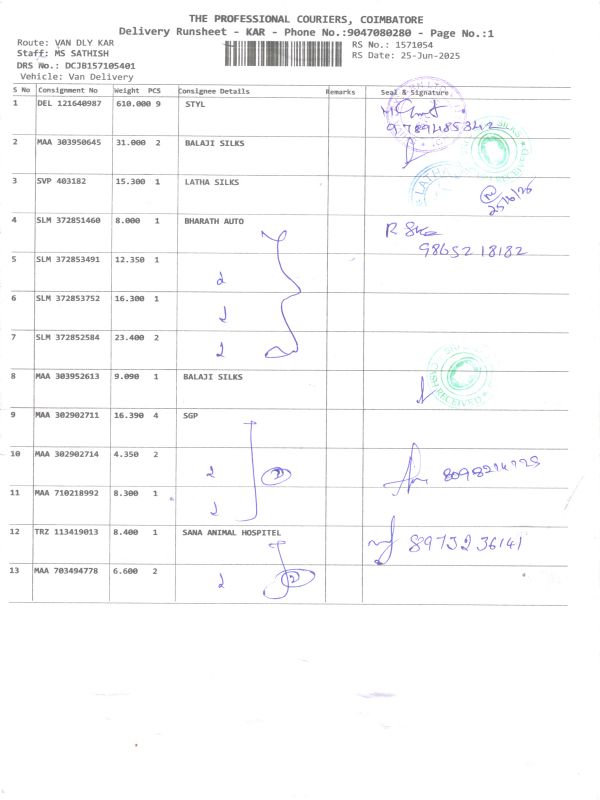 THE PROFESSIONAL COURIERS, COIMBATORE
Delivery Runsheet - KAR - Phone No.:9047080280 - Page No.:1
Route: VAN DLY KAR
Staff: MS SATHISH
DRS No.: DCJB157105401
Vehicle: Van Delivery
RS No.: 1571054
RS Date: 25-Jun-2025
S No Consignment No Weight PCS Consignee Details Remarks Seal & Signature
1 DEL 121640987 610.000 9 STYL
9789485342
2 MAA 303950645 31.000 2 BALAJI SILKS
3 SVP 403182 15.300 1 LATHA SILKS
LATHA
25/6/25
4 SLM 372851460 8.000 1 BHARATH AUTO
9865218182
5 SLM 372853491 12.350 1
6 SLM 372853752 16.300 1
7 SLM 372852584 23.400 2
8 MAA 303952613 9.090 1 BALAJI SILKS
CASH RECEIVED
9 MAA 302902711 16.390 4 SGP
10 MAA 302902714 4.350 2
11 MAA 710218992 8.300 1
12 TRZ 113419013 8.400 1 SANA ANIMAL HOSPITEL
8973236141
13 MAA 703494778 6.600 2